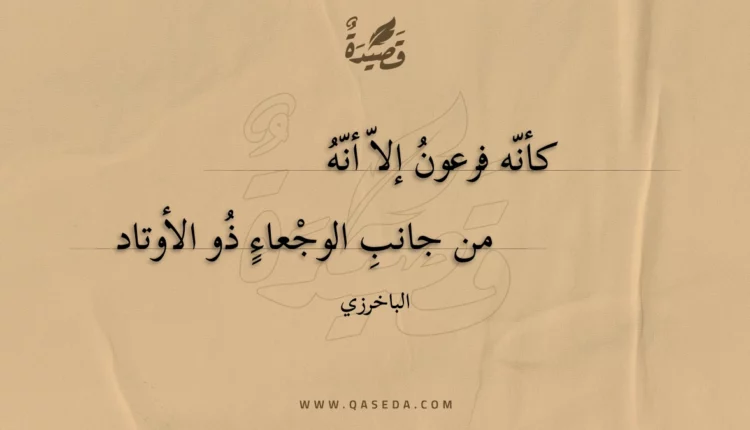 قَصِيْدَةٌ
كأنّه فرعونُ إلاّ أنّهُ
من جانبِ الوجْعاءِ ذُو الأوتاد
الباخرزي
WWW.QASEDA.COM